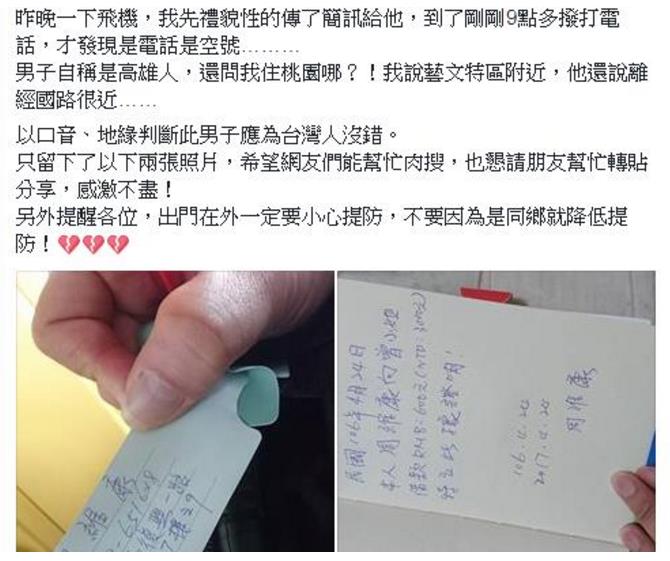 昨晚一下飛機，我先禮貌性的傳了簡訊給他，到了剛剛9點多撥打電
話，才發現是電話是空號………
男子自稱是高雄人，還問我住桃園哪？！我說藝文特區附近，他還說離
經國路很近……
以口音、地緣判斷此男子應為台灣人沒錯。
只留下了以下兩張照片，希望網友們能幫忙肉搜，也懇請朋友幫忙轉貼
分享，感激不盡！
另外提醒各位，出門在外一定要小心提防，不要因為是同鄉就降低提
防！
民國106年4月24日
本人周維康向曾小姐
借款RMB:600元(NTD:3000元)
特立此據證明！
106.4.24
2017.4.24
周維康
維康